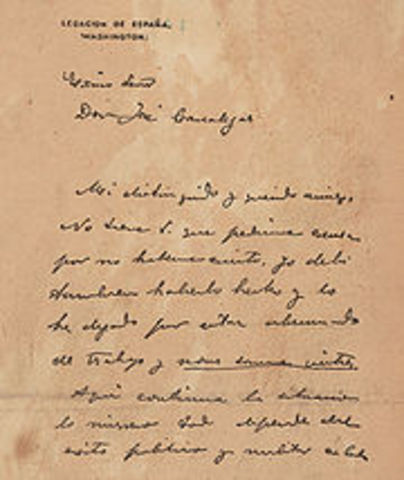 LEGACION DE ESPAÑA,
WASHINGTON.
Excmo Señor
Don José Canalejas
Mi distinguido y querido amigo,
No tiene V. que pedirme excusas
por no haberme escrito, yo debi
tambien haberlo hecho y lo
he dejado por estar abrumado
de trabajo y nous sommes quittes.
Aqui continua la situacion
lo mismo. Todo depende del
exito politico y militar en Cuba